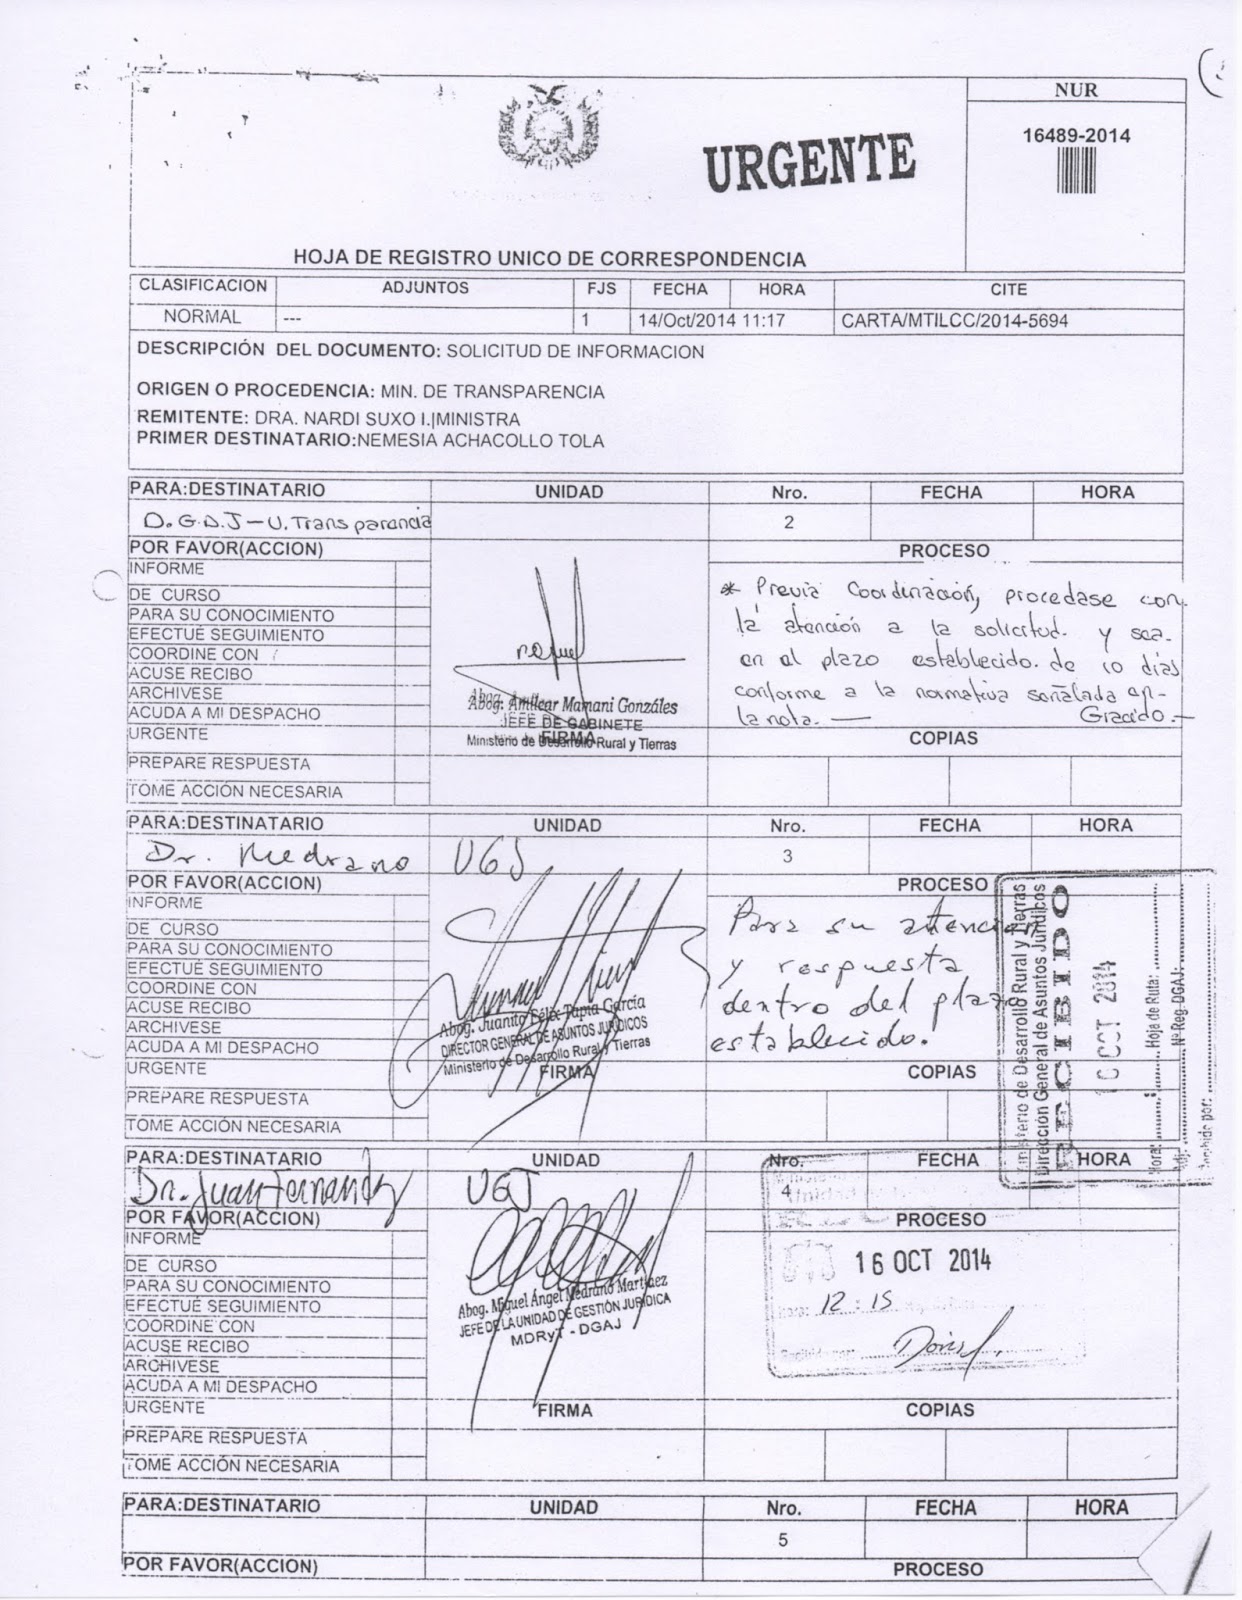 NUR
16489-2014
URGENTE
HOJA DE REGISTRO UNICO DE CORRESPONDENCIA
CLASIFICACION ADJUNTOS FJS FECHA HORA CITE
NORMAL --- 1 14/Oct/2014 11:17 CARTA/MTILCC/2014-5694
DESCRIPCIÓN DEL DOCUMENTO: SOLICITUD DE INFORMACION
ORIGEN O PROCEDENCIA: MIN. DE TRANSPARENCIA
REMITENTE: DRA. NARDI SUXO I.|MINISTRA
PRIMER DESTINATARIO:NEMESIA ACHACOLLO TOLA
PARA:DESTINATARIO UNIDAD Nro. FECHA HORA
D.G.D.J - U. Transparancia 2
POR FAVOR(ACCION) PROCESO
INFORME
DE CURSO
PARA SU CONOCIMIENTO
EFECTUÉ SEGUIMIENTO
COORDINE CON
ACUSE RECIBO
ARCHIVESE
ACUDA A MI DESPACHO
URGENTE
PREPARE RESPUESTA
TOME ACCIÓN NECESARIA
Abog. Amilcar Mamani Gonzáles
JEFE DE GABINETE
Ministerio de Desarrollo Rural y Tierras
FIRMA
* Previa Coordinación, procedase con
la atención a la solicitud. y sea
en el plazo establecido. de 10 días
conforme a la normativa señalada en
la nota. —
COPIAS
PARA:DESTINATARIO UNIDAD Nro. FECHA HORA
Dr. Medrano UGJ 3
POR FAVOR(ACCION) PROCESO
INFORME
DE CURSO
PARA SU CONOCIMIENTO
EFECTUÉ SEGUIMIENTO
COORDINE CON
ACUSE RECIBO
ARCHIVESE
ACUDA A MI DESPACHO
URGENTE
PREPARE RESPUESTA
TOME ACCIÓN NECESARIA
Abog. Juanito Félix Tapia García
DIRECTOR GENERAL DE ASUNTOS JURÍDICOS
Ministerio de Desarrollo Rural y Tierras
FIRMA
Para su atención
y respuesta
dentro del plazo
establecido.
COPIAS
Ministerio de Desarrollo Rural y Tierras
Dirección General de Asuntos Jurídicos
RECIBIDO
16 OCT 2014
Hora: Hoja de Ruta:
Nº Reg. DGAJ:
Recibido por:
PARA:DESTINATARIO UNIDAD Nro. FECHA HORA
Dr. Juan Fernandez UGJ 4
POR FAVOR(ACCION) PROCESO
INFORME
DE CURSO
PARA SU CONOCIMIENTO
EFECTUÉ SEGUIMIENTO
COORDINE CON
ACUSE RECIBO
ARCHIVESE
ACUDA A MI DESPACHO
URGENTE
PREPARE RESPUESTA
TOME ACCIÓN NECESARIA
Abog. Miguel Ángel Medrano Martinez
JEFE DE LA UNIDAD DE GESTIÓN JURIDICA
MDRyT - DGAJ
FIRMA
16 OCT 2014
12:15
COPIAS
PARA:DESTINATARIO UNIDAD Nro. FECHA HORA
5
POR FAVOR(ACCION) PROCESO